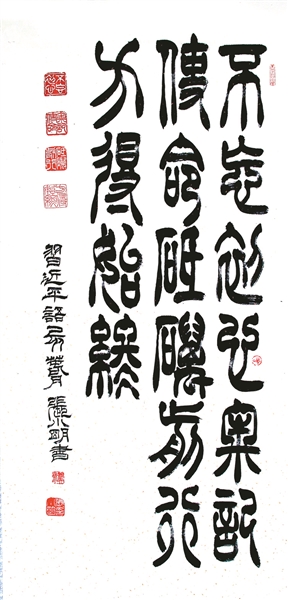 不忘初心牢記
使命砥礪前行
方得始終
習近平語 張明書